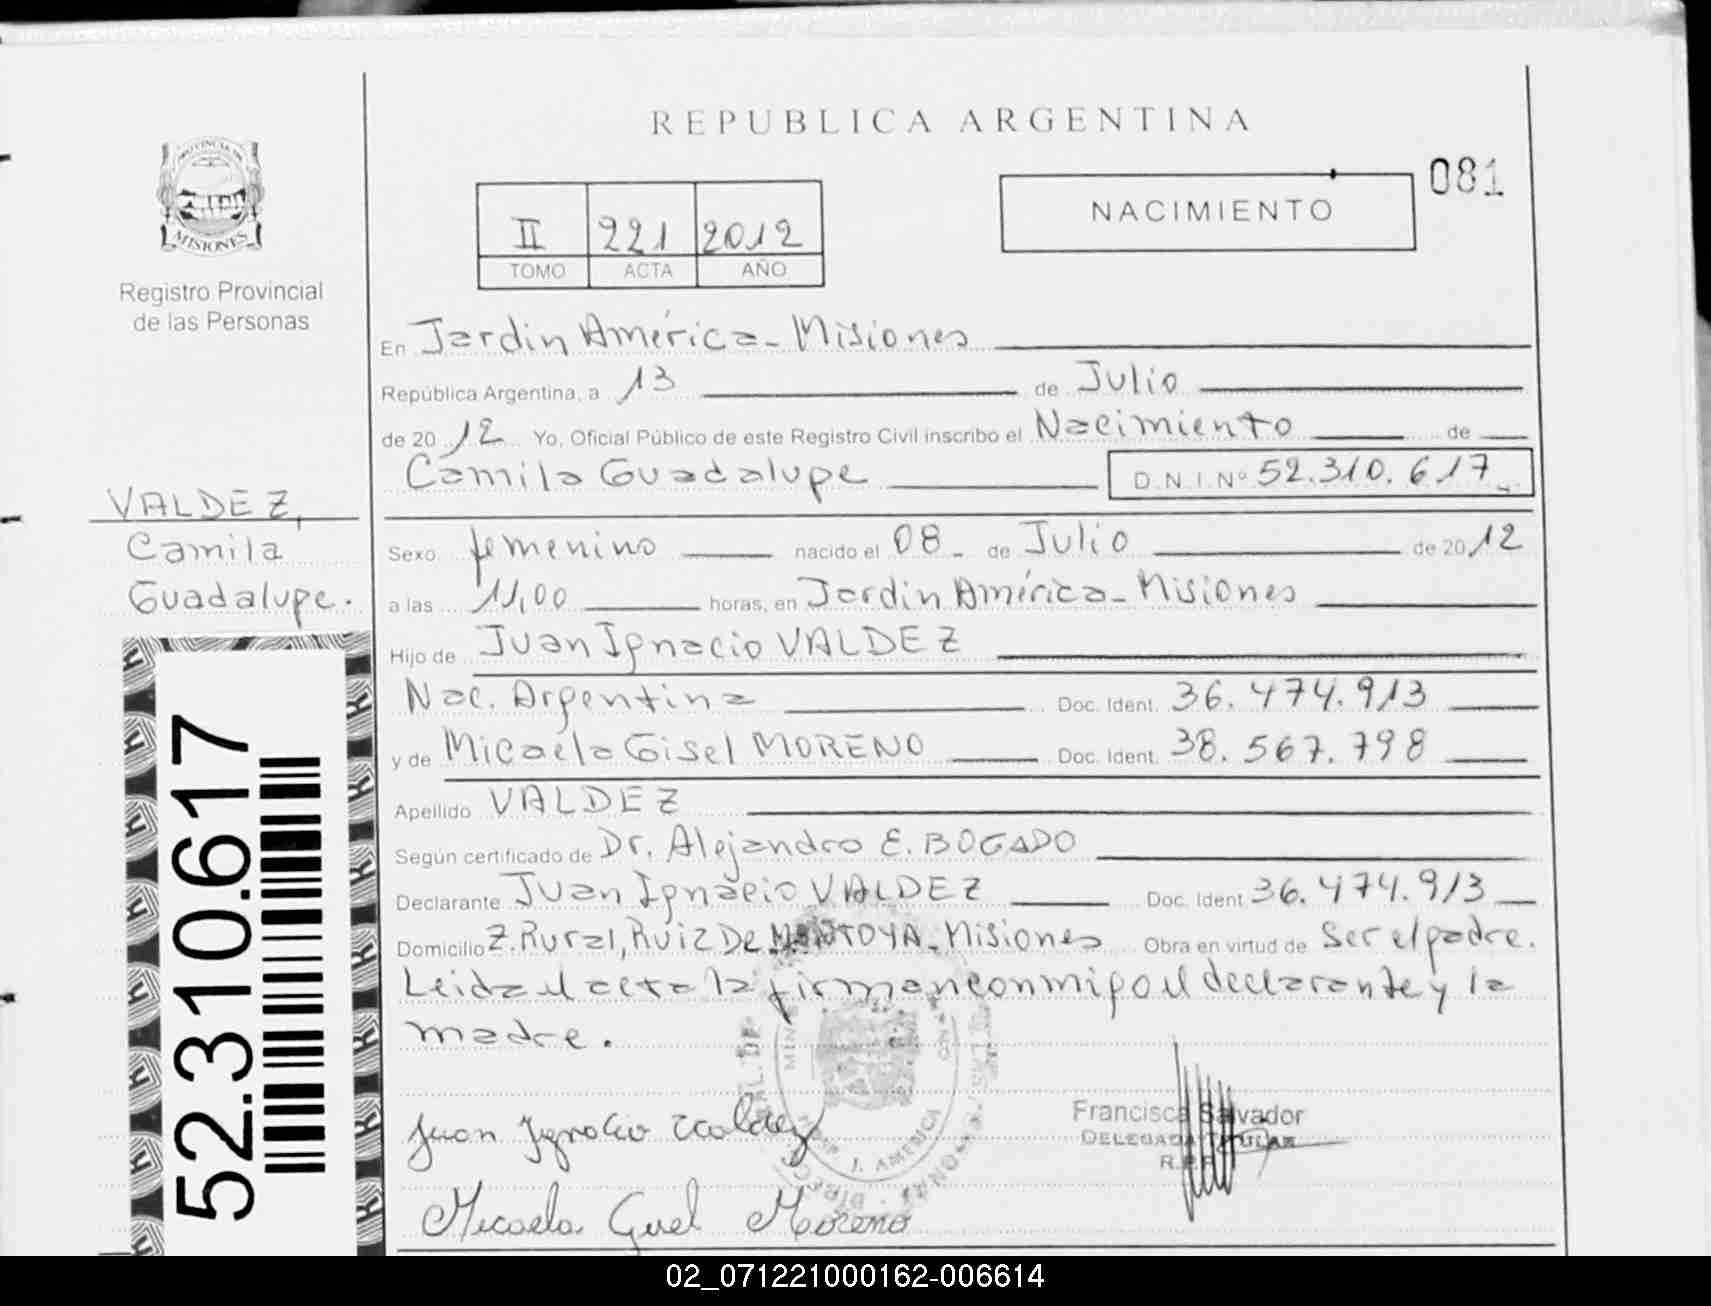 REPUBLICA ARGENTINA
PROVINCIA DE
MISIONES
Registro Provincial
de las Personas
081
NACIMIENTO
II 221 2012
TOMO ACTA AÑO
En Jardín América - Misiones
República Argentina, a 13 de Julio
de 20 12 Yo, Oficial Público de este Registro Civil inscribo el Nacimiento de
Camila Guadalupe D.N.I. Nº 52.310.617
VALDEZ,
Camila
Guadalupe.
Sexo femenino nacido el 08 - de Julio de 20 12
a las 11,00 horas, en Jardín América - Misiones
Hijo de Juan Ignacio VALDEZ
Nac. Argentina Doc. Ident. 36.474.913
y de Micaela Gisel MORENO Doc. Ident. 38.567.798
Apellido VALDEZ
Según certificado de Dr. Alejandro E. BOGADO
Declarante Juan Ignacio VALDEZ Doc. Ident 36.474.913
Domicilio Z. Rural, Ruiz De MONTOYA - Misiones Obra en virtud de Ser el padre.
Leida el acta la firman conmigo el declarante y la
madre.
52.310.617
Juan Ignacio Valdez
Micaela Gisel Moreno
Francisca Salvador
DELEGADA TITULAR
R.P.P
J. AMERICA
02_071221000162-006614